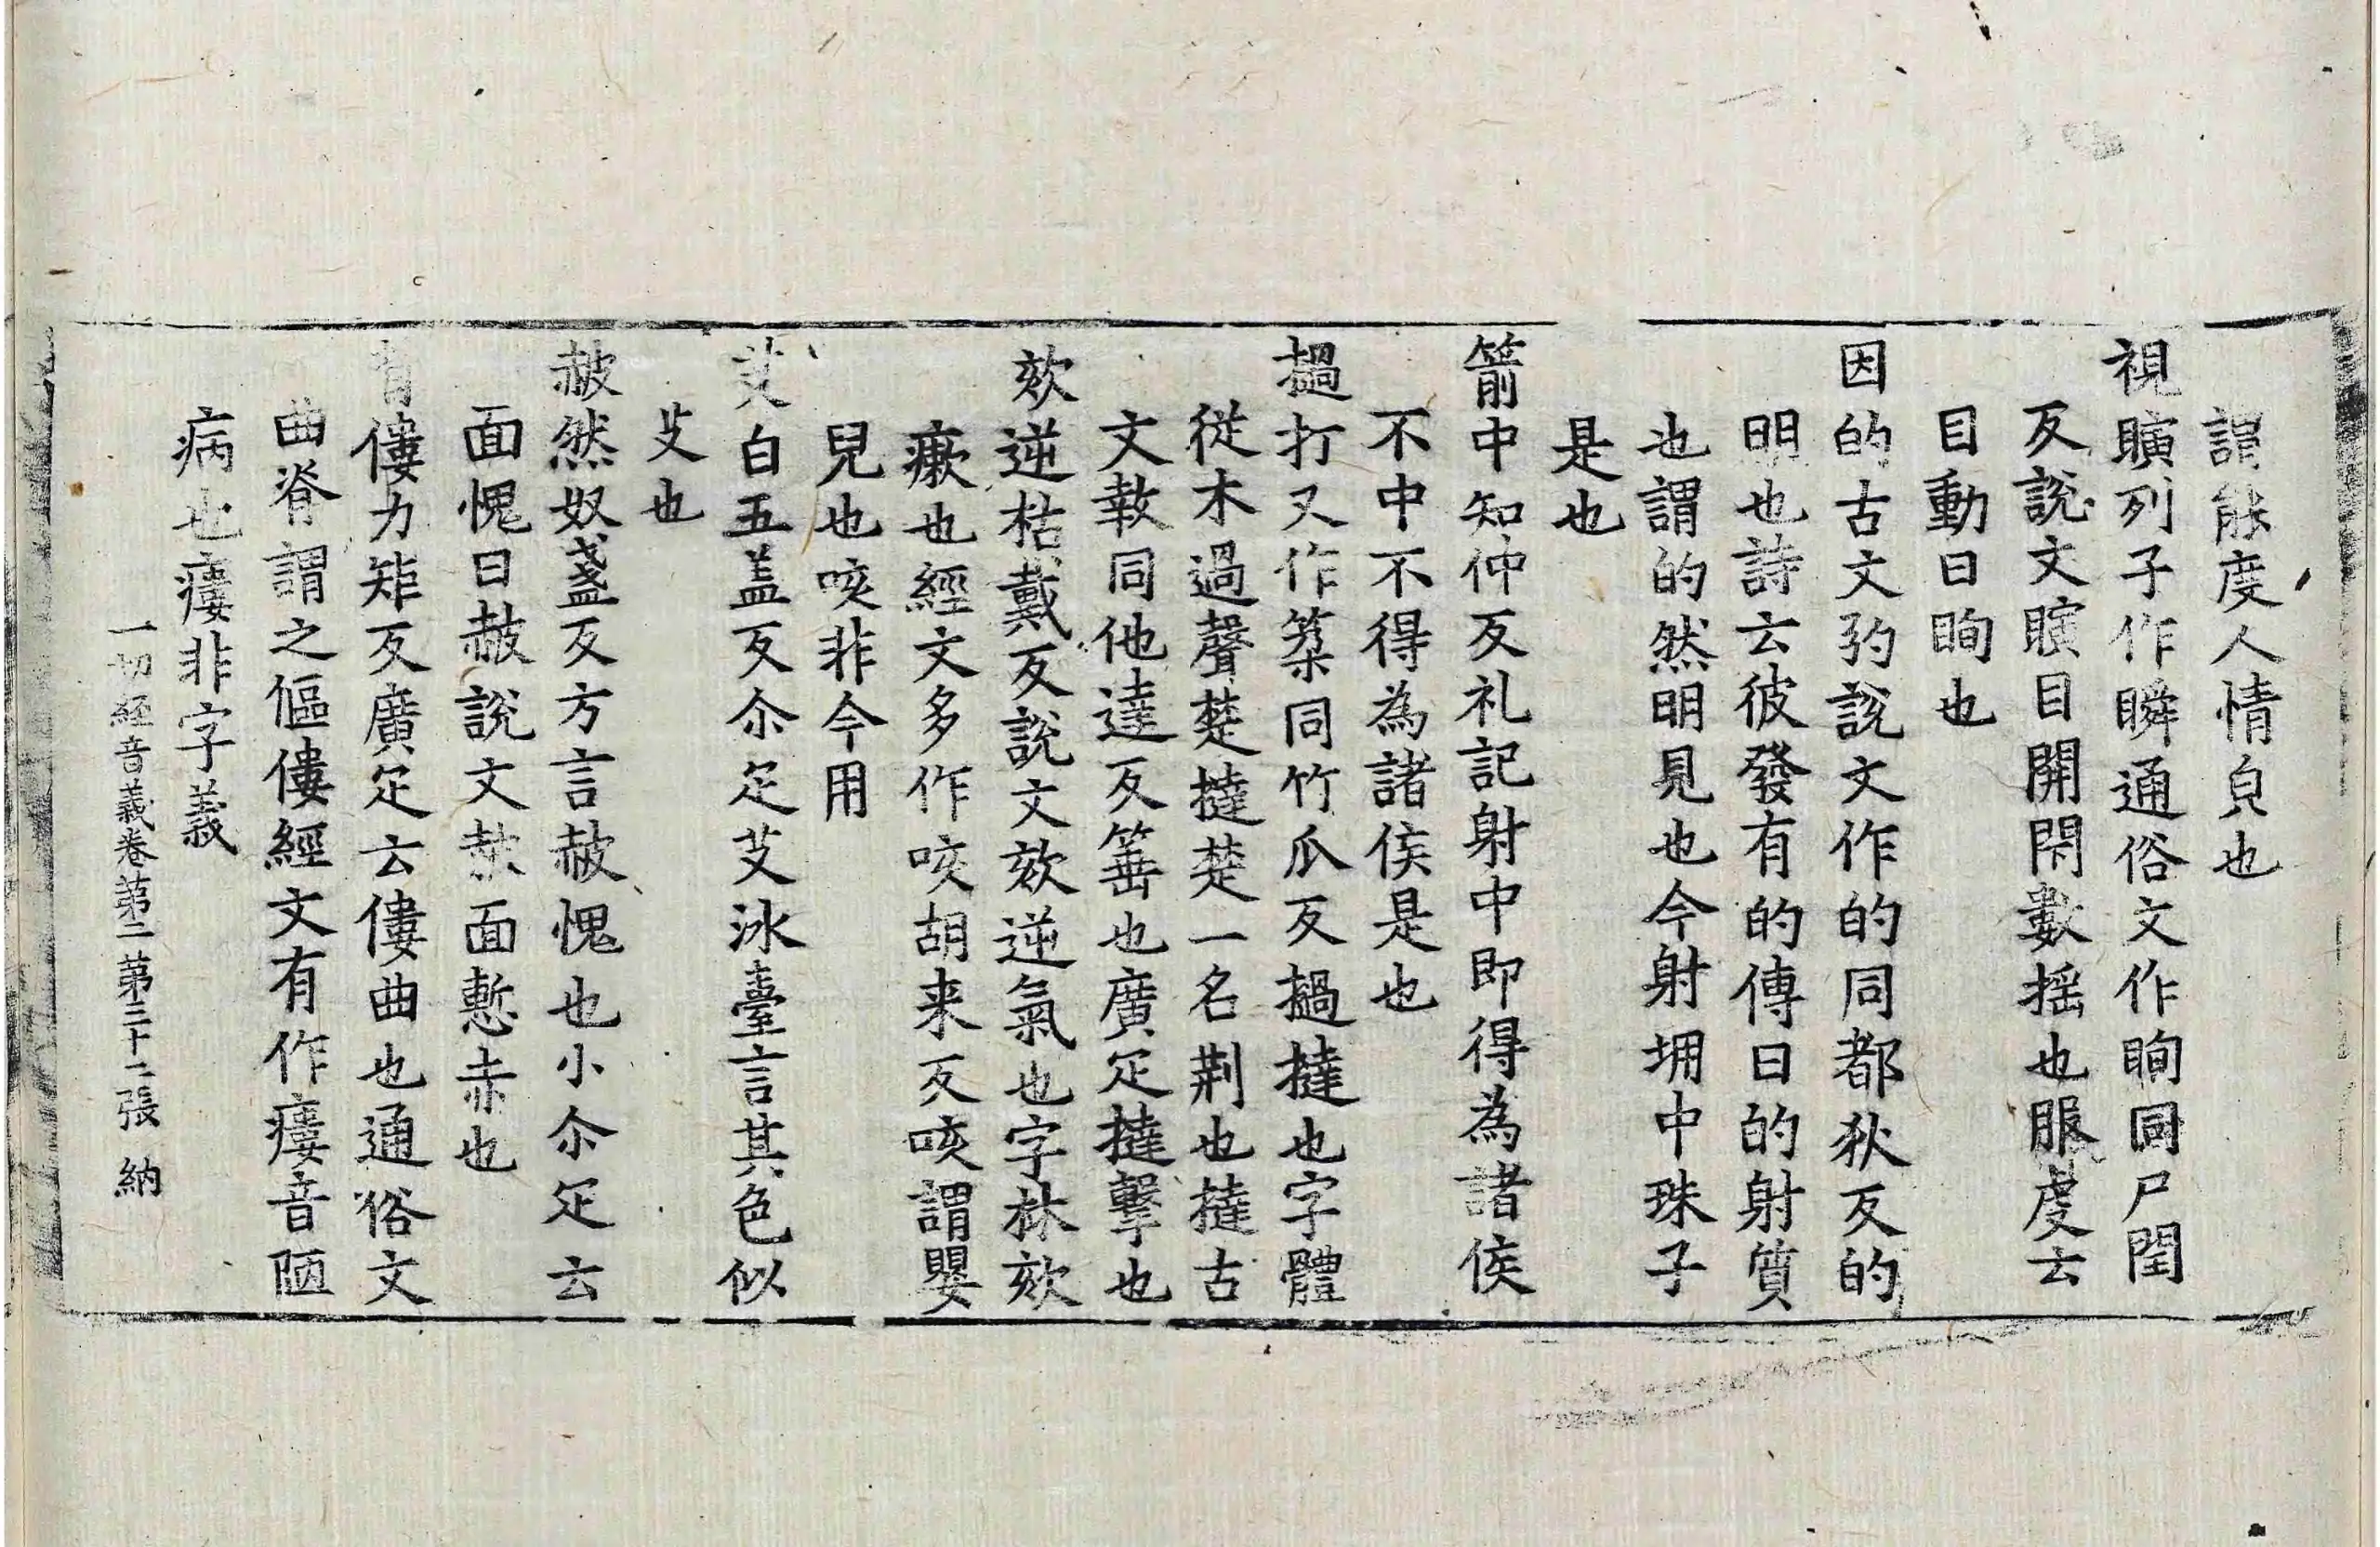 謂能度人情皃也
視瞚列子作瞬通俗文作眴同尸閏
反說文瞚目開閇數摇也服虔云
目動曰眴也
因的古文𢏗說文作的同都狄反的
明也詩云彼發有的傳曰的射質
也謂的然明見也今射堋中珠子
是也
箭中知仲反礼記射中即得為諸侯
不中不得為諸侯是也
撾打又作築同竹瓜反撾撻也字體
從木過聲楚撻楚一名荆也撻古
文㪚同他達反箠也廣疋撻擊也
欬逆枯戴反說文欬逆氣也字林欬
瘷也經文多作咳胡来反咳謂嬰
兒也咳非今用
艾白五盖反尒疋艾冰臺言其色似
艾也
赧然奴盞反方言赧愧也小尒疋云
面愧曰赧說文赧面慙赤也
背僂力矩反廣疋云僂曲也通俗文
曲脊謂之傴僂經文有作瘻音陋
病也瘻非字義
一切經音義卷第二 第三十一張 納